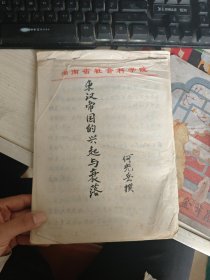 湖南省社会科学院
东汉帝国的兴起与衰落
何光岳撰